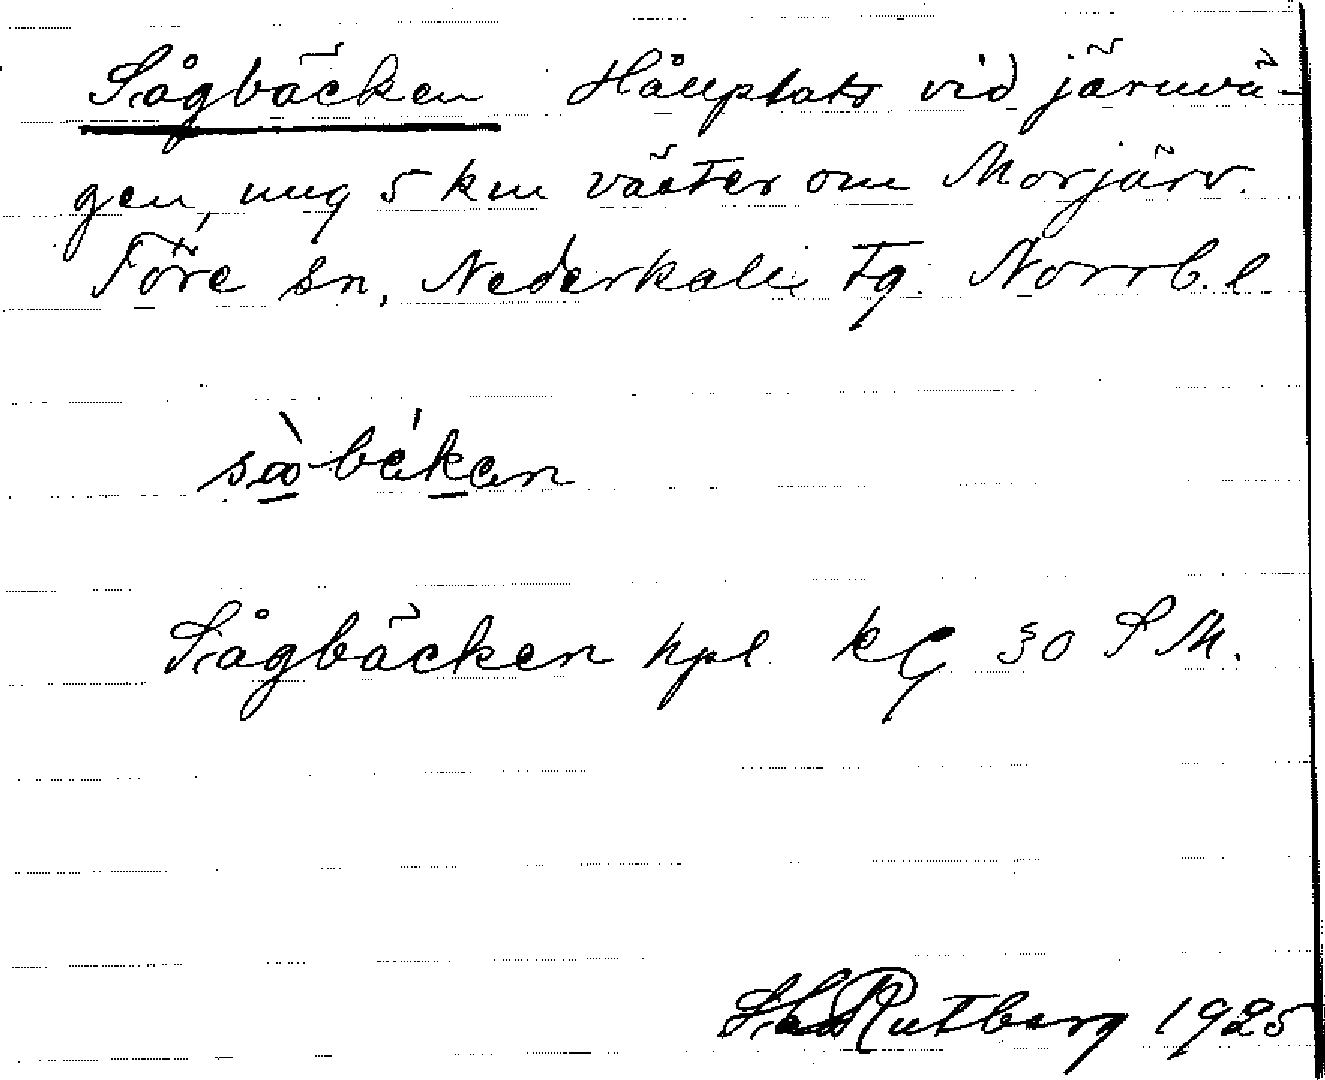 Sågbäcken Hållplats vid järnvä-
gen, ung 5 km väster om Morjärv.
Töre sn, Nederkalix Tg. Norrb. l.
Sågbäcken hpl. KG 30 S M.
Rutberg 1925